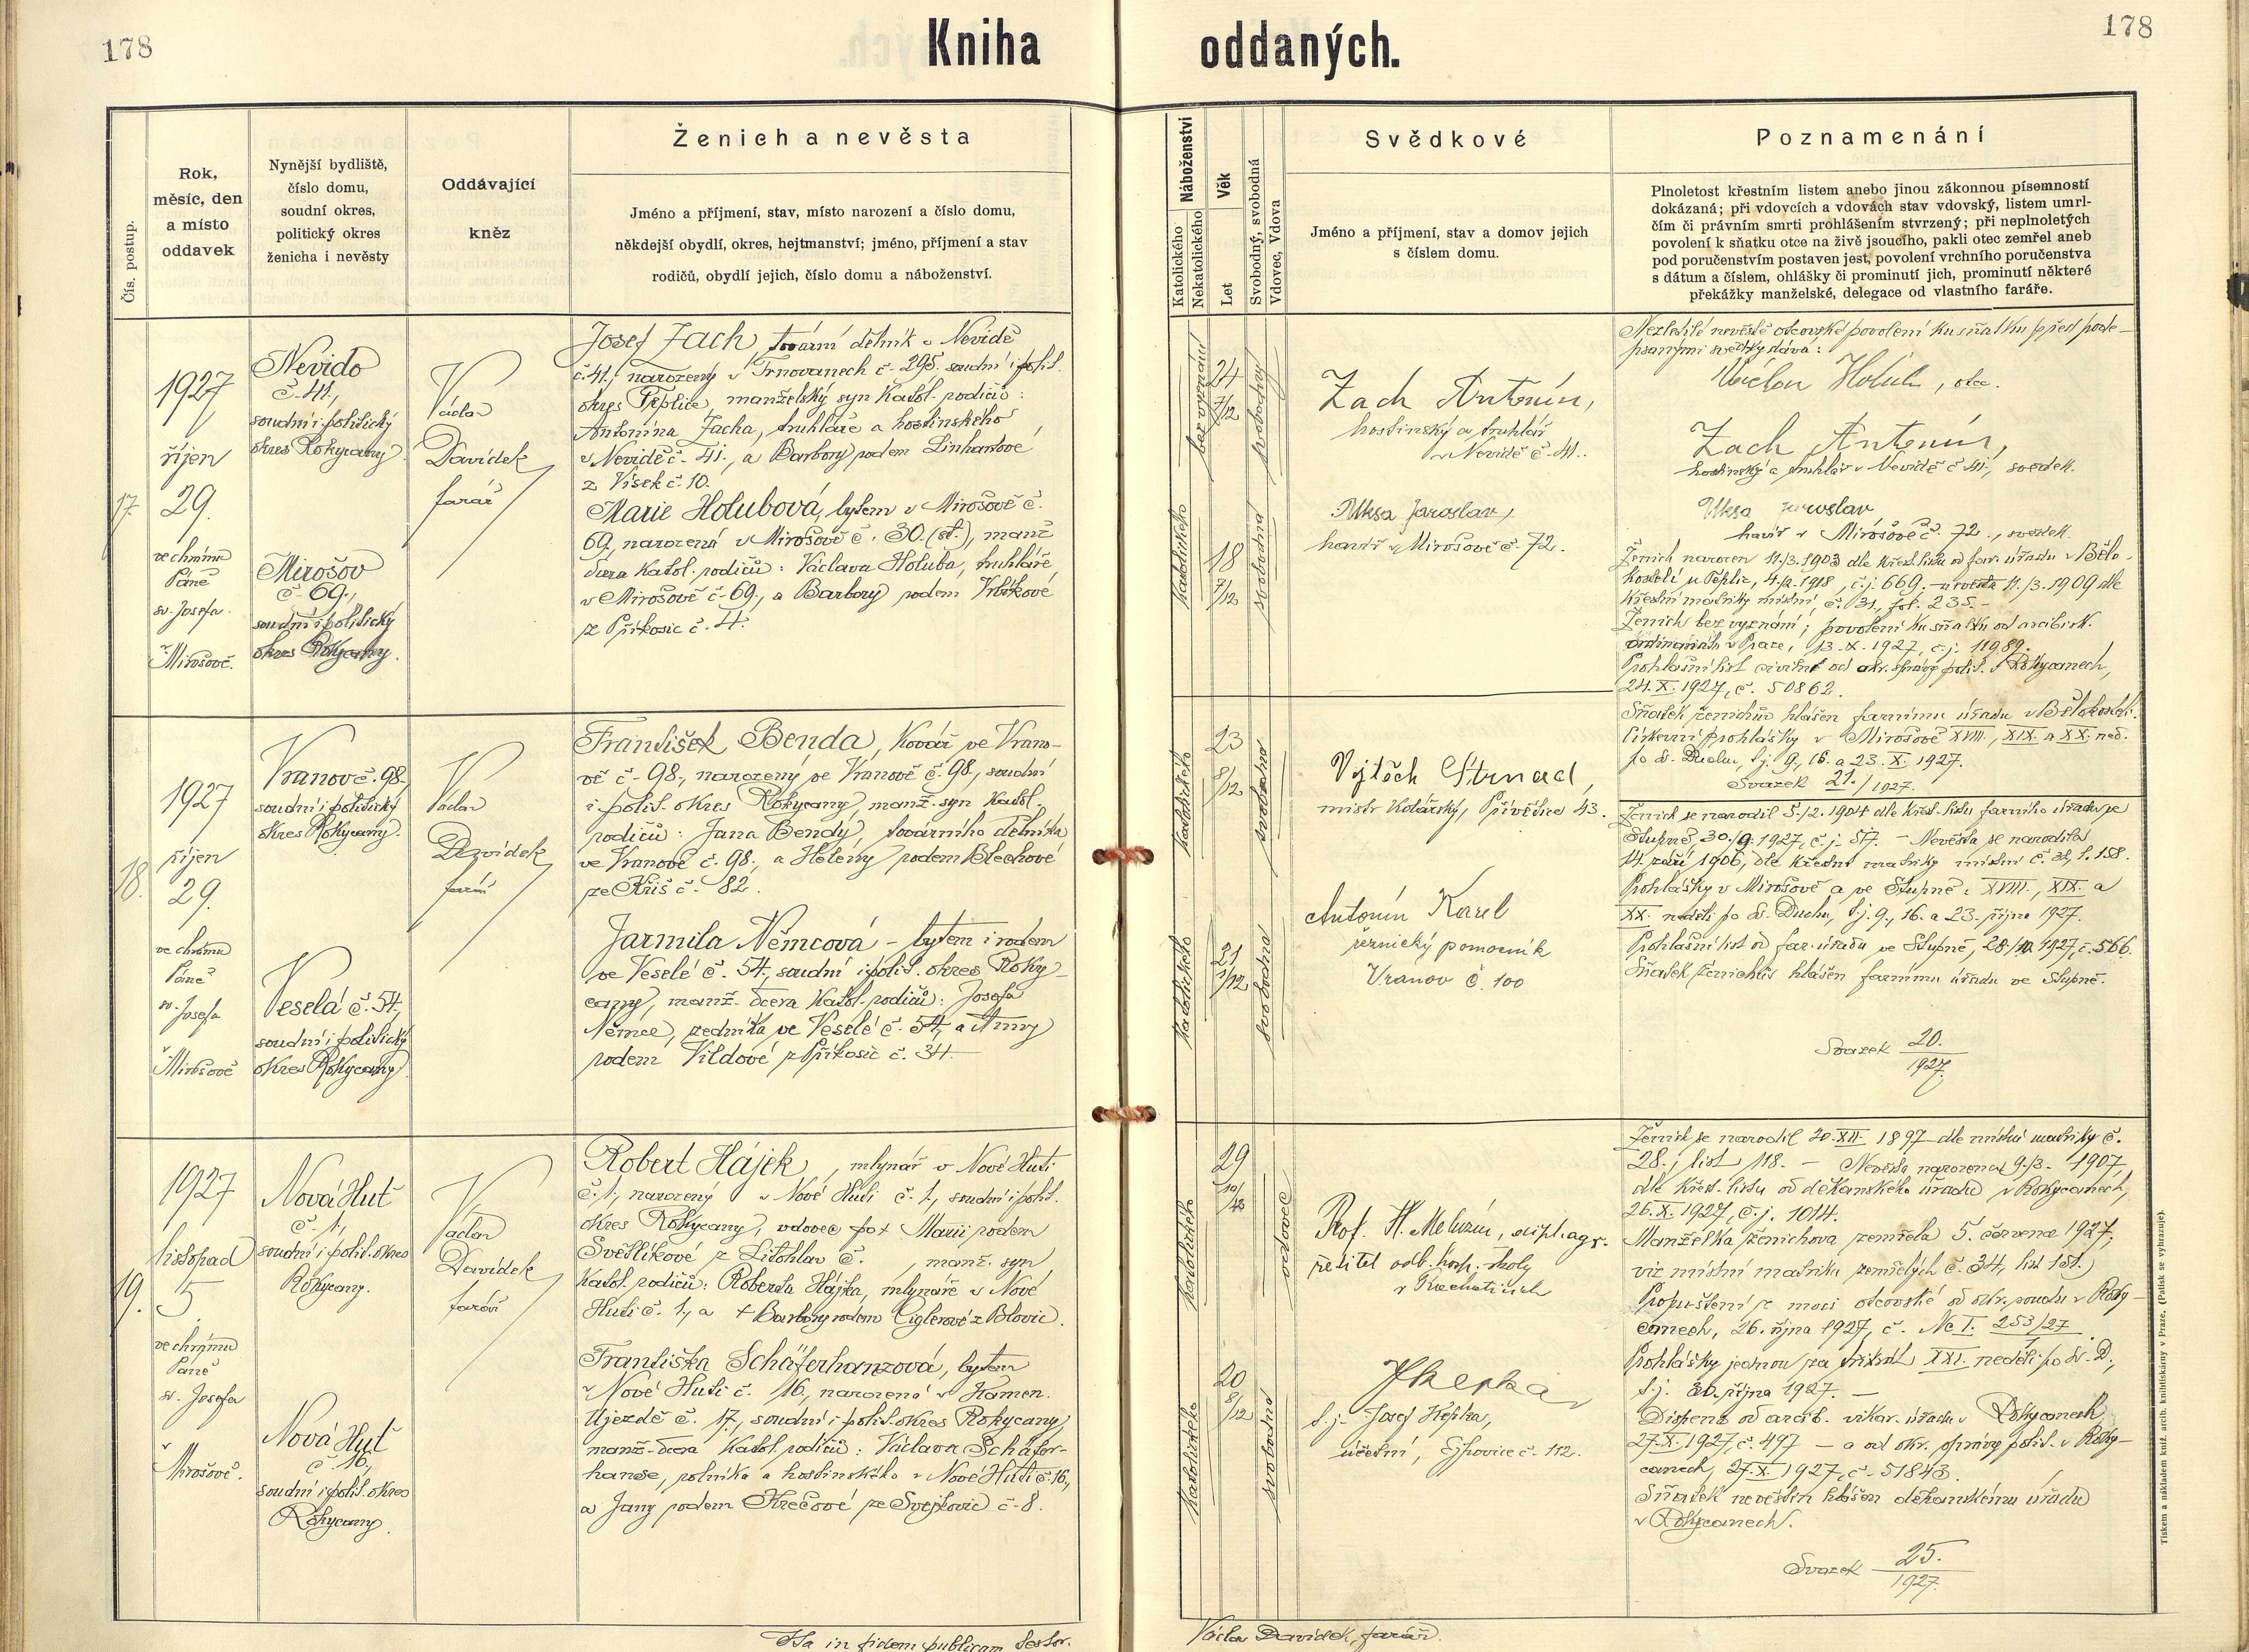 178
Kniha
oddaných.
178
Čís. postup.
Rok,
měsíc, den
a místo
oddavek
Nynější bydliště,
číslo domu,
soudní okres,
politický okres
ženicha i nevěsty
Oddávající
kněz
Ženich a nevěsta
Jméno a příjmení, stav, místo narození a číslo domu,
někdejší obydlí, okres, hejtmanství; jméno, příjmení a stav
rodičů, obydlí jejich, číslo domu a náboženství.
Náboženství
Katolického
Nekatolického
Věk
Let
Svobodný, svobodná
Vdovec, Vdova
Svědkové
Jméno a příjmení, stav a domov jejich
s číslem domu.
Poznamenání
Plnoletost křestním listem anebo jinou zákonnou písemností
dokázaná; při vdovcích a vdovách stav vdovský, listem umrl-
čím či právním smrti prohlášením stvrzený; při neplnoletých
povolení k sňatku otce na živě jsoucího, pakli otec zemřel aneb
pod poručenstvím postaven jest, povolení vrchního poručenstva
s dátum a číslem, ohlášky či prominutí jich, prominutí některé
překážky manželské, delegace od vlastního faráře.
17.
1927
říjen
29.
ve chrámu
Páně
sv. Josefa
v
Mirošově.
Nevido
č. 41.,
soudní i politický
okres Rokycany.
Mirošov
č. 69.,
soudní i politický
okres Rokycany.
Václav
Davídek
farář
Josef Zach tovární dělník v Nevidě
č. 41., narozený v Trnovanech č. 295. soudní i polit.
okres Teplice, manželský syn katol. rodičů:
Antonína Zacha, truhláře a hostinského
v Nevidě č. 41., a Barbory rodem Linhartové
z Vísek č. 10.
Marie Holubová, bytem v Mirošově č.
69., narozená v Mirošově č. 30. (st.), manž.
dcera katol. rodičů: Václava Holuba, truhláře
v Mirošově č. 69., a Barbory rodem Vrbíkové
z Příkosic č. 4.
bez vyznání
24
7/12
svobodný
katolického
18
7/12
svobodná
Zach Antonín,
hostinský a truhlář
v Nevidě č. 41.
Uksa Jaroslav,
havíř v Mirošově č. 72.
Nezletilé nevěstě otcovské povolení ku sňatku před pode-
psanými svědky dává:
Václav Holub, otec.
Zach Antonín,
hostinský a truhlář v Nevidě č. 41., svědek.
Uksa Jaroslav
havíř v Mirošově č. 72., svědek.
Ženich narozen 11./3. 1903 dle křest. listu od far. úřadu v Bělo-
kostele u Teplic, 4./2. 1918, č. j. 669. – nevěsta 11./3. 1909 dle
křestní matriky místní č. 31, fol. 235. –
Ženich bez vyznání; povolení ku sňatku od arcibisk.
ordinariátu v Praze, 13. X. 1927, č. j. 11989.
Prohlašní list civilní od okr. správy polit. v Rokycanech,
24. X. 1927, č. 50862.
Sňatek ženichův hlášen farnímu úřadu v Bělokostele.
Církevní prohlášky v Mirošově XVIII., XIX. a XX. ned.
po sv. Duchu, t. j. 9., 16. a 23. X. 1927.
Svazek 21./1927.
18.
1927
říjen
29.
ve chrámu
Páně
sv. Josefa
v
Mirošově
Vranov č. 98.,
soudní i politický
okres Rokycany.
Veselá č. 54.,
soudní i politický
okres Rokycany
Václav
Davídek
farář
František Benda, kovář ve Vrano-
vě č. 98., narozený ve Vranově č. 98., soudní
i polit. okres Rokycany, manž. syn katol.
rodičů: Jana Bendy, továrního dělníka
ve Vranově č. 98., a Heleny rodem Blechové
ze Kříš č. 82.
Jarmila Němcová – bytem i rodem
ve Veselé č. 54., soudní i polit. okres Roky-
cany, manž. dcera katol. rodičů: Josefa
Němce, zedníka ve Veselé č. 54., a Anny
rodem Vildové z Příkosic č. 34. –
katolického
23
svobodný
katolického
21
1/12
svobodná
Vojtěch Strnad,
mistr kolářský, Přívětice 43.
Antonín Karel
řeznický pomocník
Vranov č. 100
Ženich se narodil 5./2. 1904 dle křest. listu farního úřadu ve
Stupně, 30./9. 1927, č. j. 517. – Nevěsta se narodila
14. září 1906, dle křestní matriky místní č. 31, f. 158.
Prohlášky v Mirošově a ve Stupně: XVIII., XIX. a
XX. neděli po sv. Duchu, t. j. 9., 16. a 23. října 1927.
Prohlašní list od far. úřadu ve Stupně, 28./10. 1927, č. 566.
Sňatek ženichův hlášen farnímu úřadu ve Stupně.
Svazek 20./1927.
19.
1927
listopad
5
ve chrámu
Páně
sv. Josefa
v
Mirošově.
Nová Huť
č. 1.,
soudní i polit. okres
Rokycany.
Nová Huť
č. 16.,
soudní i polit. okres
Rokycany.
Václav
Davídek
farář
Robert Hájek, mlynář v Nové Huti
č. 1., narozený v Nové Huti č. 1., soudní i polit.
okres Rokycany, vdovec po † Marii rodem
Světlíkové z Litohlav č. , manž. syn
katol. rodičů: Roberta Hájka, mlynáře v Nové
Huti č. 1., a † Barbory rodem Ciglerové z Blovic.
Františka Schäferhanzová, bytem
v Nové Huti č. 16., narozená v Kamen.
Újezdě č. 17., soudní i polit. okres Rokycany
manž. dcera katol. rodičů: Václava Schäfer-
hanse, rolníka a hostinského v Nové Huti č. 16.,
a Jany rodem Krečové ze Svojkovic č. 8.
katolického
29
vdovec
katolického
20
8/12
svobodná
Prof. H. Meluzín, dipl. agr.
ředitel odb. hosp. školy
v
t. j. Josef Kepka,
účetní, Ejpovice č. 112.
Ženich se narodil 20. XII. 1897 dle místní matriky č.
28., list 118. – Nevěsta narozena 9./3. 1907,
dle křest. listu od děkanského úřadu v Rokycanech,
26. X. 1927, č. j. 1014.
Manželka ženichova zemřela 5. července 1927,
viz místní matriku zemřelých č. 34, list 151.)
Propuštění z moci otcovské od okr. soudu v Roky-
canech, 26. října 1927, č. Nc I. 253/27
Prohlášky jednou za třikrát XXI. neděli po sv. D.,
t. j. 30. října 1927. –
Dispens od arcib. vikar. úřadu v Rokycanech,
27. X. 1927, č. 497 – a od okr. správy polit. v Roky-
canech, 27. X. 1927, č. 51843.
Sňatek nevěstin hlášen děkanskému úřadu
v Rokycanech.
Svazek 25./1927.
Ita in fidem publicam testor.
Václav Davídek, farář.
Tiskem a nákladem kníž. arcib. knihtiskárny v Praze. (Patisk se vyhrazuje).